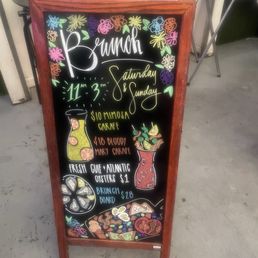 Brunch
Saturday
& Sunday
11 - 3pm
$10 MIMOSA
CARAFE
$18 BLOODY
MARY CARAFE
FRESH GULF + ATLANTIC
OYSTERS $1
BRUNCH
BOARD $28